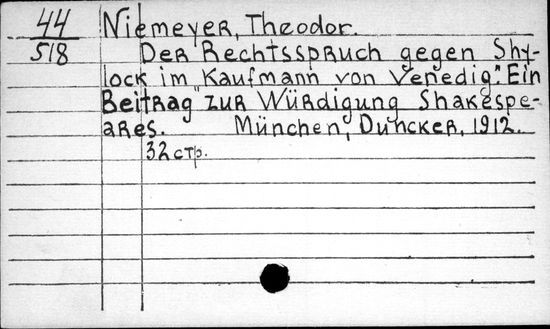 44 Niemeyer, Theodor.
518 Der Rechtsspruch gegen Shy-
lock im "Kaufmann von Venedig". Ein
Beitrag zur Würdigung Shakespe-
ares. München, Duncker, 1912.
32 стр.